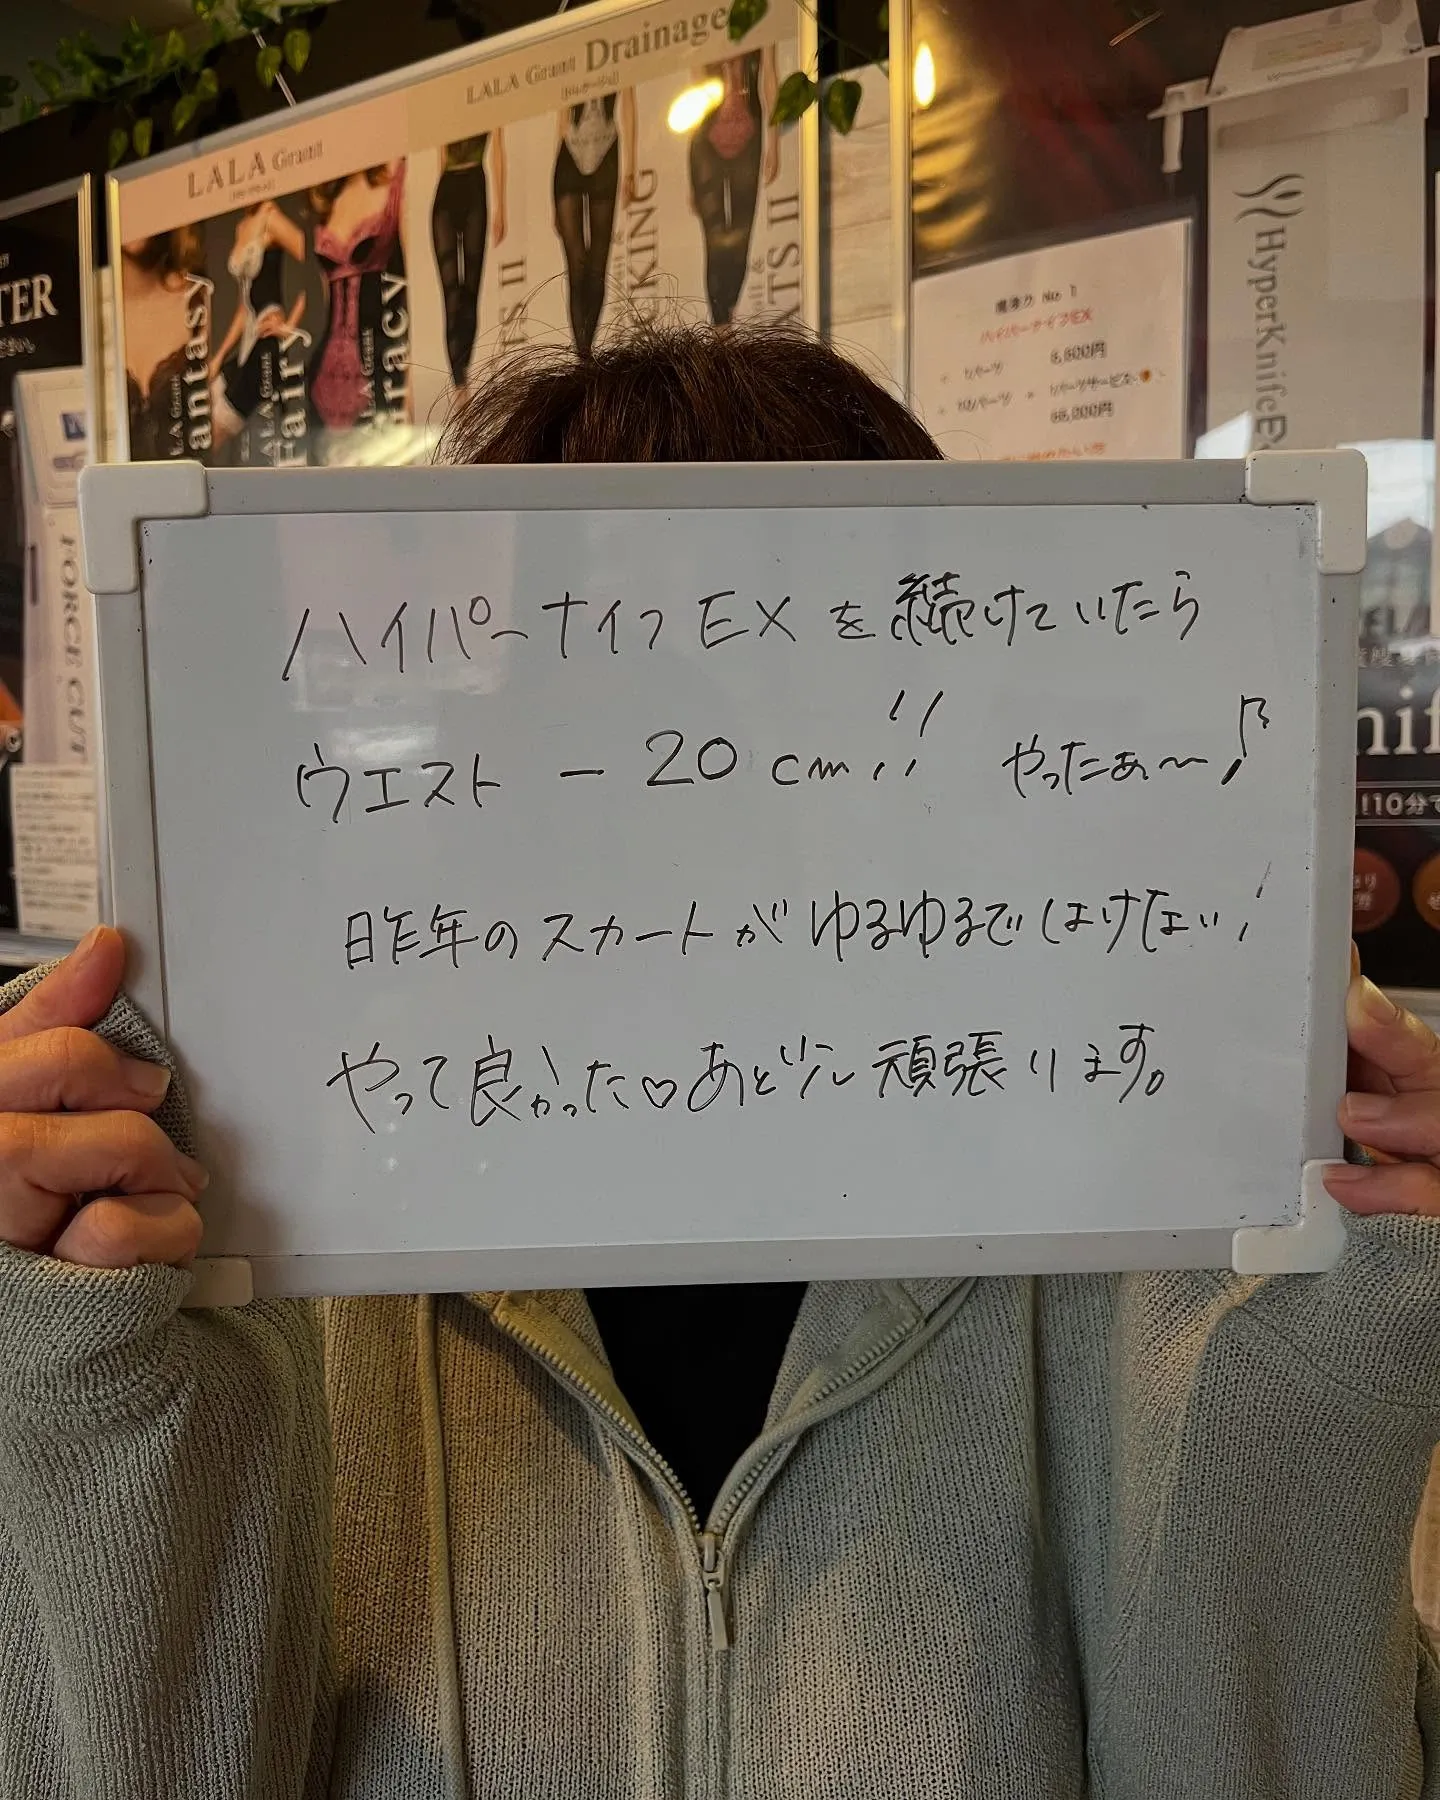 LALA Grant Drainage
LALA Grant
Fantasy
Fairy
Gracy
HyperKnifeE
ハイパーナイフEX
1パーツ 6,600円
10パーツ + 1パーツサービス
66,000円
FORCE CUT
ハイパーナイフEXを続けていたら
ウエスト -20cm!! やったぁ〜♪
昨年のスカートがゆるゆるではけない!
やって良かった♡あと少し頑張ります。